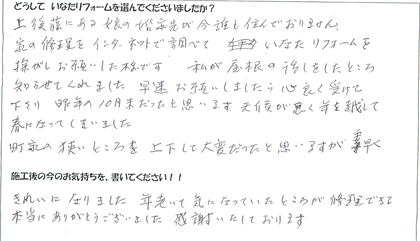 どうして いなたリフォームを選んでくださいましたか?
上後藤にある娘の嫁ぎ先が今誰も住んでおりません
家の修理をインターネットで調べて いなたリフォームを
探がしお願いした様です 私が屋根の話しをしたところ
知らせてくれました 早速お願いしましたら心良く受けて
下さり 昨年の10月末だったと思います 天候が悪く年を越して
春になってしまいました
町家の狭いところを上下して大変だったと思いますが 早く
施工後の今のお気持ちを、書いてください!!
きれいになりました 年老いて気になっていたところが修理できて
本当にありがとうございました 感謝いたしております